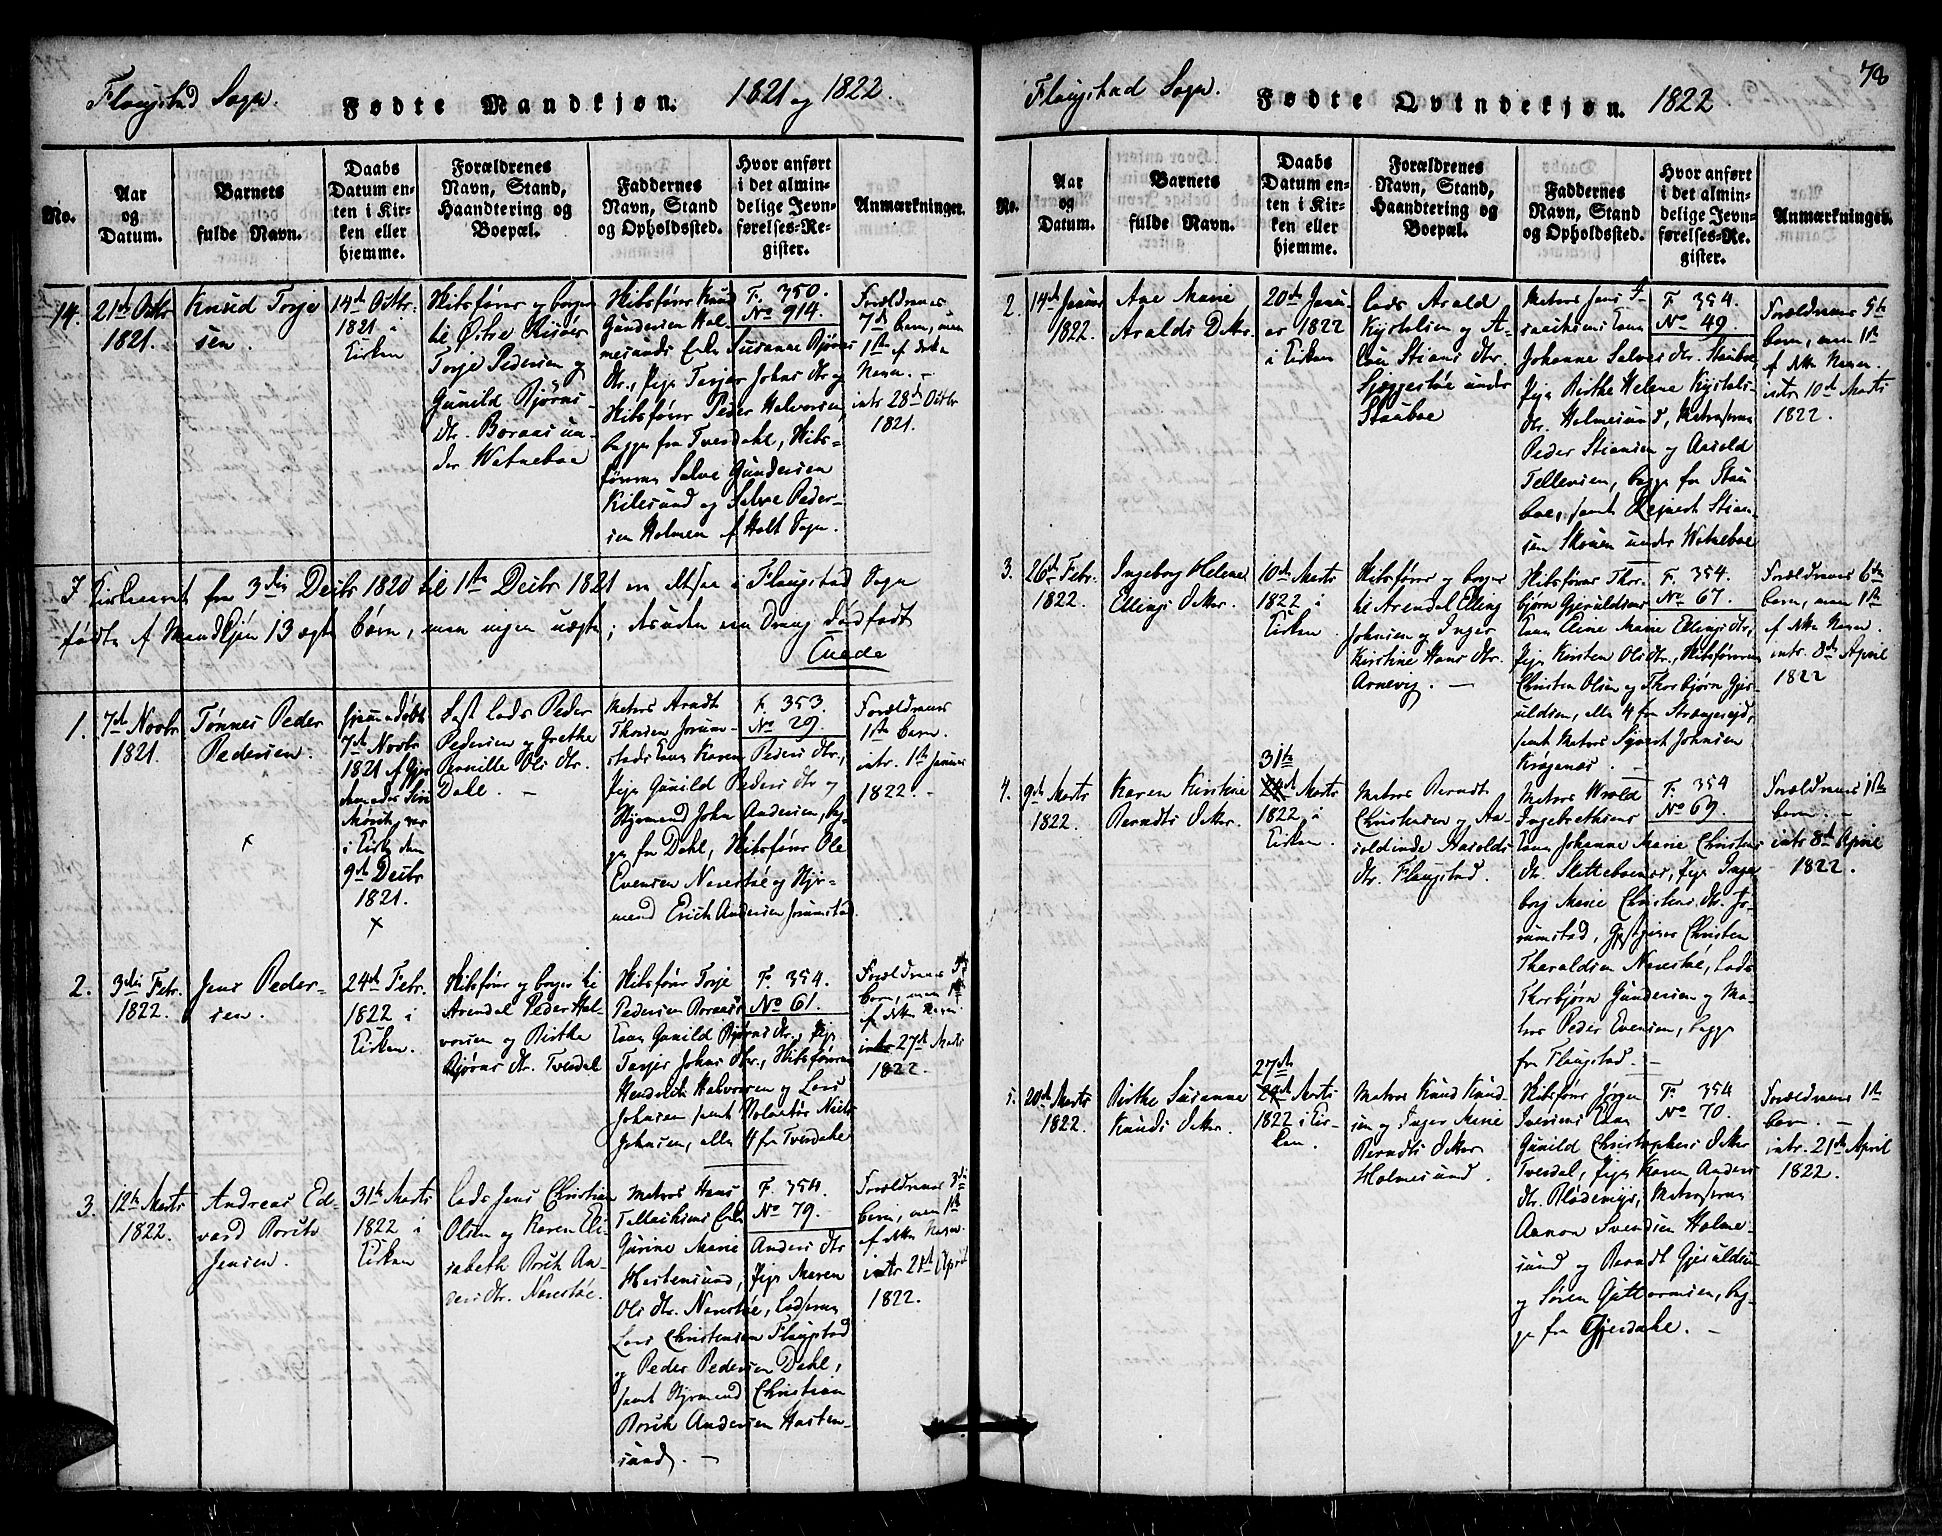 Flaugstad Sogn.
Fødte Mandkjøn. 1821 og 1822.
No.
Aar
og
Datum.
Barnets
fulde Navn.
Daabs
Datum en-
ten i Kir-
ken eller
hjemme.
Forældrenes
Navn, Stand,
Haandtering og
Boepæl.
Faddernes
Navn, Stand
og Opholdssted.
Hvor anført
i det almin-
delige Jevn-
førelses-Re-
gister.
Anmærkninger.
14.
21de Octbr
1821.
Knud Torje
sen.
14de Octbr.
1821 i
Kirken
Skibsfører og borger
til Østre Riisøer
Torje Pedersen og
Gunild Bjørns-
dtr. Boraas un-
der Watneboe
Skibsfører Knud
Gundersen Hol-
mesunds Susanne Bjørns
dtr., Pige Torjer Johns dtr og
Skibsfører Peder Halvorsen,
begge fra Tverdahl, Skibs-
fører Salve Gundersen
Kilesund og Salve Peder-
sen Holmen af Holt Sogn.
F. 350.
No 914.
Forældrenes
7de barn, men
1ste af dette
Navn. -
intr 28de Octbr
1821.
I Kirkeaaret fra 3die Decbr 1820 til 1ste Decbr 1821 ere altsaa i Flaugstad Sogn
fødte af Mandkjøn 13 ægte børn, men ingen uægte; desuden en Dreng Dødfødt
1.
7de Novbr
1821.
Tønnes Peder
Pedersen.
hjemmedøbt
7de Novbr
1821 af
i Kirken den
9de Decbr
1821.
Lods Peder
Pedersen og Grethe
Pernille Ols dtr.
Dahl. -
Matros Arndt
Thorsen Jorum-
stads Kone Karen Peders dtr.,
Pige Gunild Peders dtr og
Styrmand John Andersen, beg-
ge fra Dahl, Skibsfører Ole
Evensen Narestøe og Styr-
mand Erich Andersen Jorumstad.
F. 353.
No 29.
Forældrenes
1ste barn.
intr. 1ste Januar
1822. -
2.
3die Febr.
1822.
Jens Peder-
sen.
24de Febr.
1822 i
Kirken.
Skibsfører og borger til
Arendal Peder Hal-
vorsen og Birthe
Bjørns dtr. Tverdal
Skibsfører Torje
Pedersen Boraas's
Kone Gunild Bjørns dtr., Pige
Torjer Johns dtr., Skibsførerne
Hendrich Halvorsen og Lars
Johnsen samt Niels
Johnsen, alle 4 fra Tverdahl
F. 354.
No 61.
Forældrenes
barn, men 1ste
af dette Navn
intr 27de Marts
1822.
3.
12te Marts
1822.
Andreas Ed-
vard Borith
Jensen.
31te Marts
1822 i
Kirken
Lods Jens Christian
Olsen og Karen Eli-
sabeth Borith An-
ders dtr. Narestøe.
Matros Hans
Tellachsens Enke
Gurine Marie Anders dtr
Hastensund, Pige Maren
Ols dtr. Narestøe, Lodserne
Lars Christensen Flaugstad
og Peder Pedersen Dahl,
samt Styrmand Christian
Borith Andersen Hasten-
sund. -
F. 354.
No 79.
Forældrenes 3die
barn, men 1ste
af dette Navn.
intr 21de April
1822.
78
Flaugstad Sogn.
Fødte Qvindekjøn. 1822
No.
Aar
og
Datum.
Barnets
fulde Navn.
Daabs
Datum en-
ten i Kir-
ken eller
hjemme.
Forældrenes
Navn, Stand,
Haandtering og
Boepæl.
Faddernes
Navn, Stand
og Opholdssted.
Hvor anført
i det almin-
delige Jevn-
førelses-Re-
gister.
Anmærkninger.
2.
14de Januar
1822.
Ane Marie
Aralds Datter.
20de Janu-
ar 1822
i Kirken
Lods Arald
Kystelsen og A-
Stians dtr.
under
Stauboe
Matros Jens I-
saachsens Kone
Johanne Salves dtr. Stauboe,
Pige Berthe Helene Kystels-
dtr. Holmesund, Matroserne
Peder Stiansen og Aasold
Tellevsen, begge fra Stau-
boe, samt Rejnert Stian-
sen Skouen under Watneboe
F. 354.
No 49.
Forældrenes 5te
barn, men 1ste
af dette Navn.
intr 10de Marts
1822.
3.
26de Febr.
1822.
Ingeborg Helene
Ellings Datter.
10de Marts
1822 i
Kirken
Skibsfører og borger
til Arendal Elling
Johnsen og Inger
Kirstine Hans dtr.
Arnevig. -
Skibsfører Thor-
bjørn Gjeruldsens
Kone Eline Marie Ellings dtr.,
Pige Kirsten Ols dtr., Skibsførerne
Christen Olsen og Thorbjørn Gje-
ruldsen, alle 4 fra Strængereid,
samt Matros Sjvert Johnsen
Kragenæs. -
F. 354.
No 67.
Forældrenes 6te
barn, men 1ste
af dette Navn.
intr. 8de April
1822
4.
9de Marts
1822.
Karen Kirstine
Berndts Datter.
31te
24de Marts
1822 i
Kirken.
Matros Berndt
Christensen og Aa-
soldinde Harolds
dtr. Flaugstad.
Matros Wrold
Ingebrethsens
Kone Johanne Marie Christens
dtr. Skitteboenes, Pige Inge-
borg Marie Christens dtr. Jo-
rumstad, Gjestgiver Christen
Tharaldsen Narestøe, Lods
Thorbjørn Gundersen og Ma-
tros Peder Evensen, begge
fra Flaugstad. -
F. 354
No 69.
Forældrenes 1ste
barn. -
intr 8de April
1822.
5.
20de Marts
1822.
Birthe Susanne
Knuds Datter.
27de
24de Marts
1822 i Kir-
ken.
Matros Knud Knud
sen og Inger Marie
Berndts Datter
Holmesund.
Skibsfører Jørgen
Iversens Kone
Gunild Christophers Datter
Tverdal, Pige Karen Anders
dtr. Blødevigs, Matroserne
Aanon Svendsen Holme-
sund og Berndt Gjeruldsen
og Søren Guttormsen, beg-
ge fra Gjerdahl. -
F. 354
No 70.
Forældrenes 1ste
barn. -
intr. 21de April
1822.